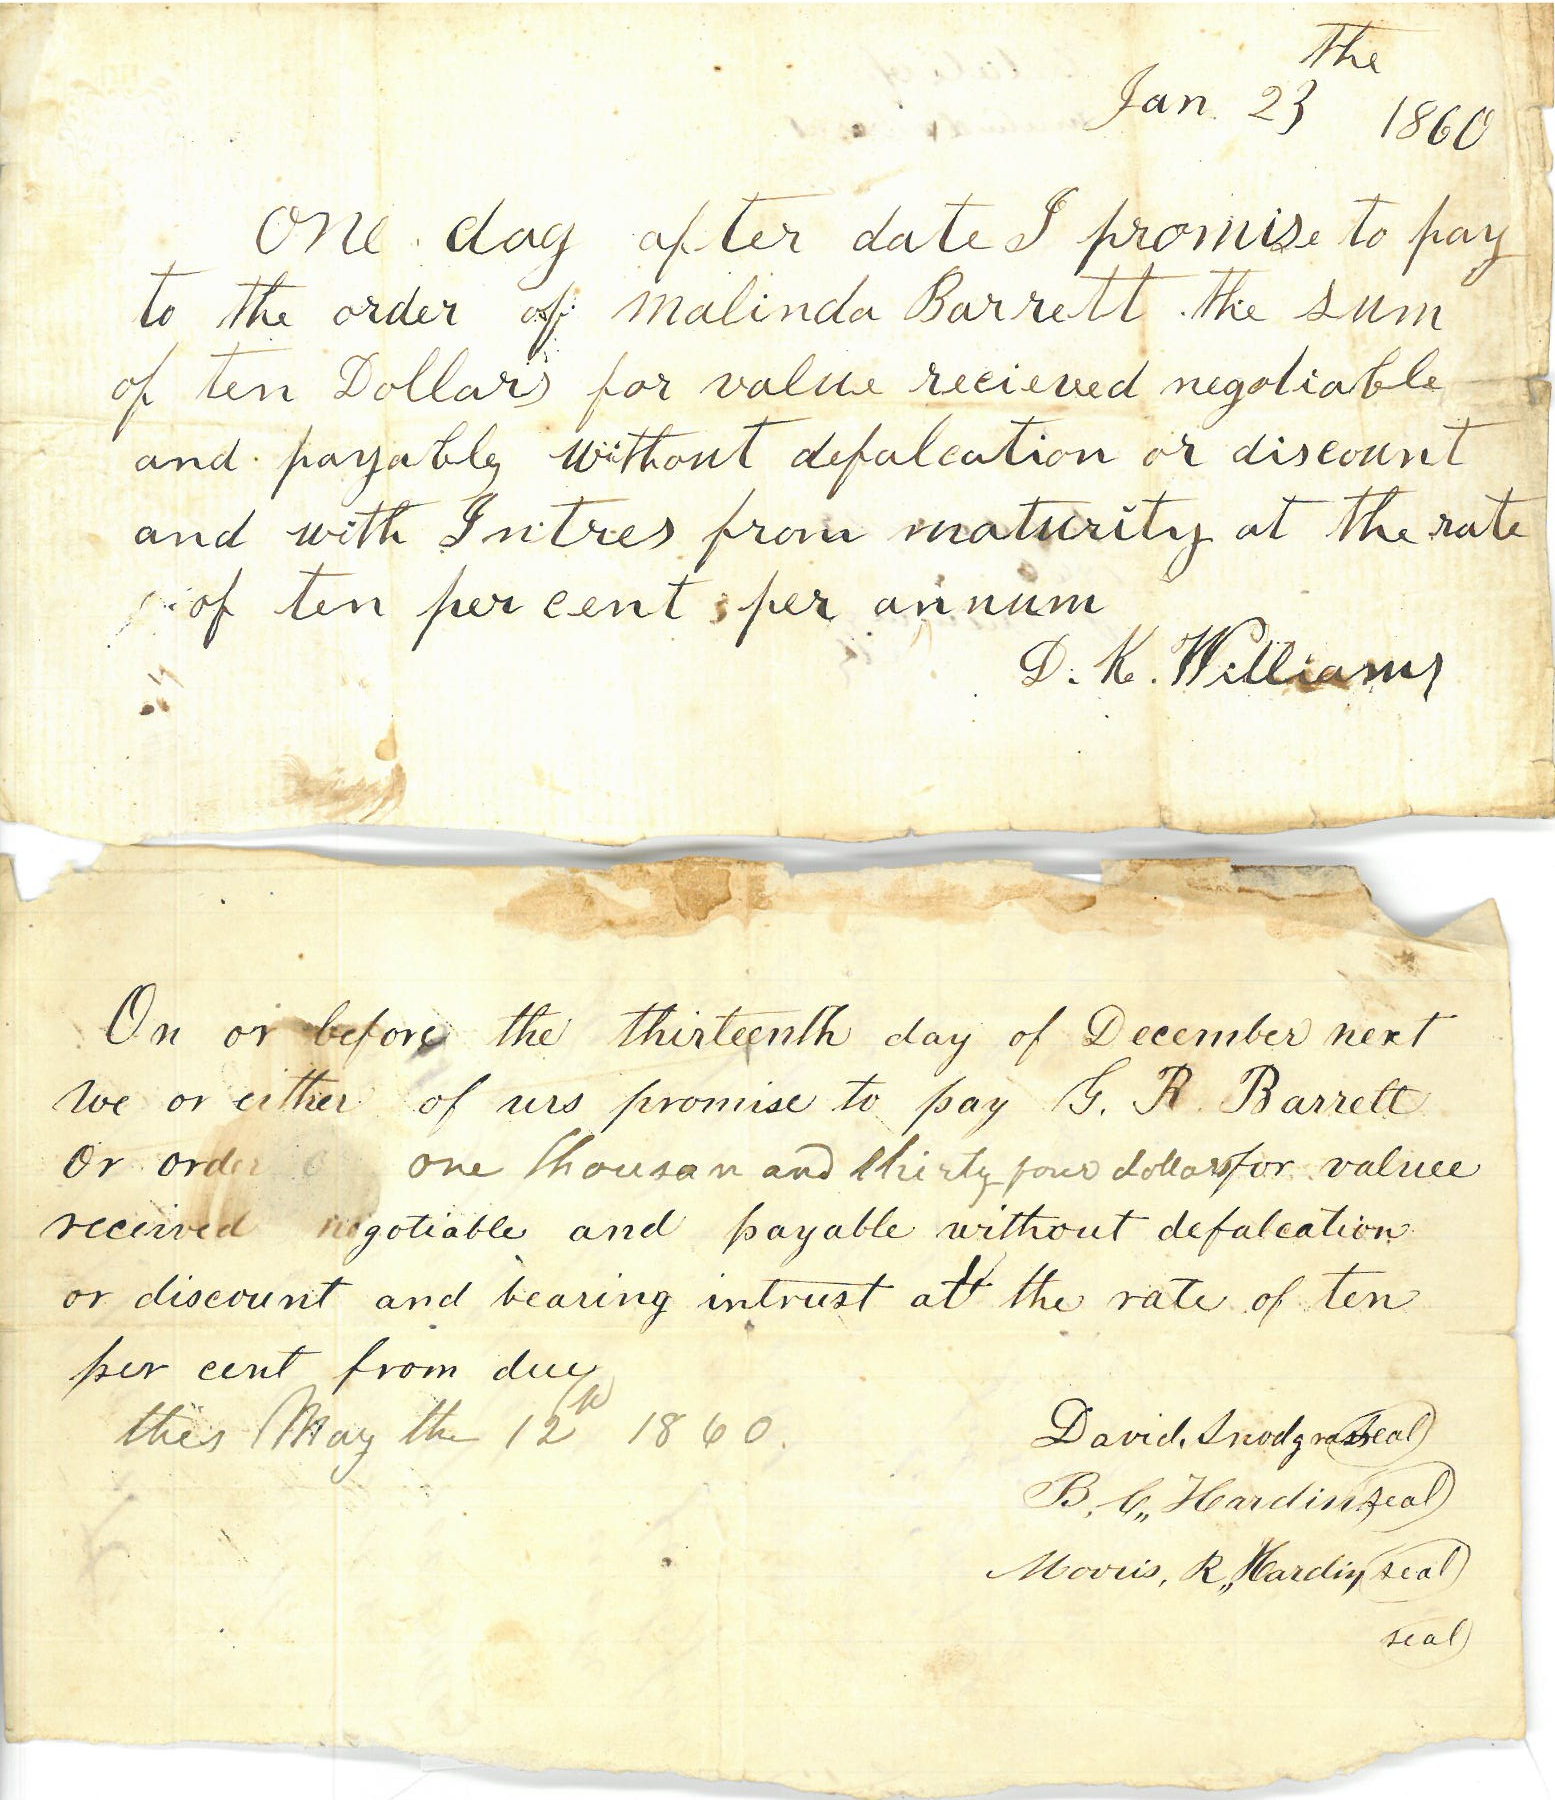 the
Jan. 23 1860
One day after date I promise to pay
to the order of Malinda Barrett the sum
of ten Dollars for value recieved negotiable
and payably without defalcation or discount
and with Intres from maturity at the rate
of ten per cent per annum
D. K. Williams
On or before the thirteenth day of December next
We or either of urs promise to pay G. R. Barrett
Or order one thousan and thirty four dollars for valuee
received negotiable and payable without defalcation
or discount and bearing intrust att the rate of ten
per cent from duey
this May the 12th 1860.
David. Snodgrass seal
B. C,, Hardin seal
Morris, R,, Hardin seal
seal